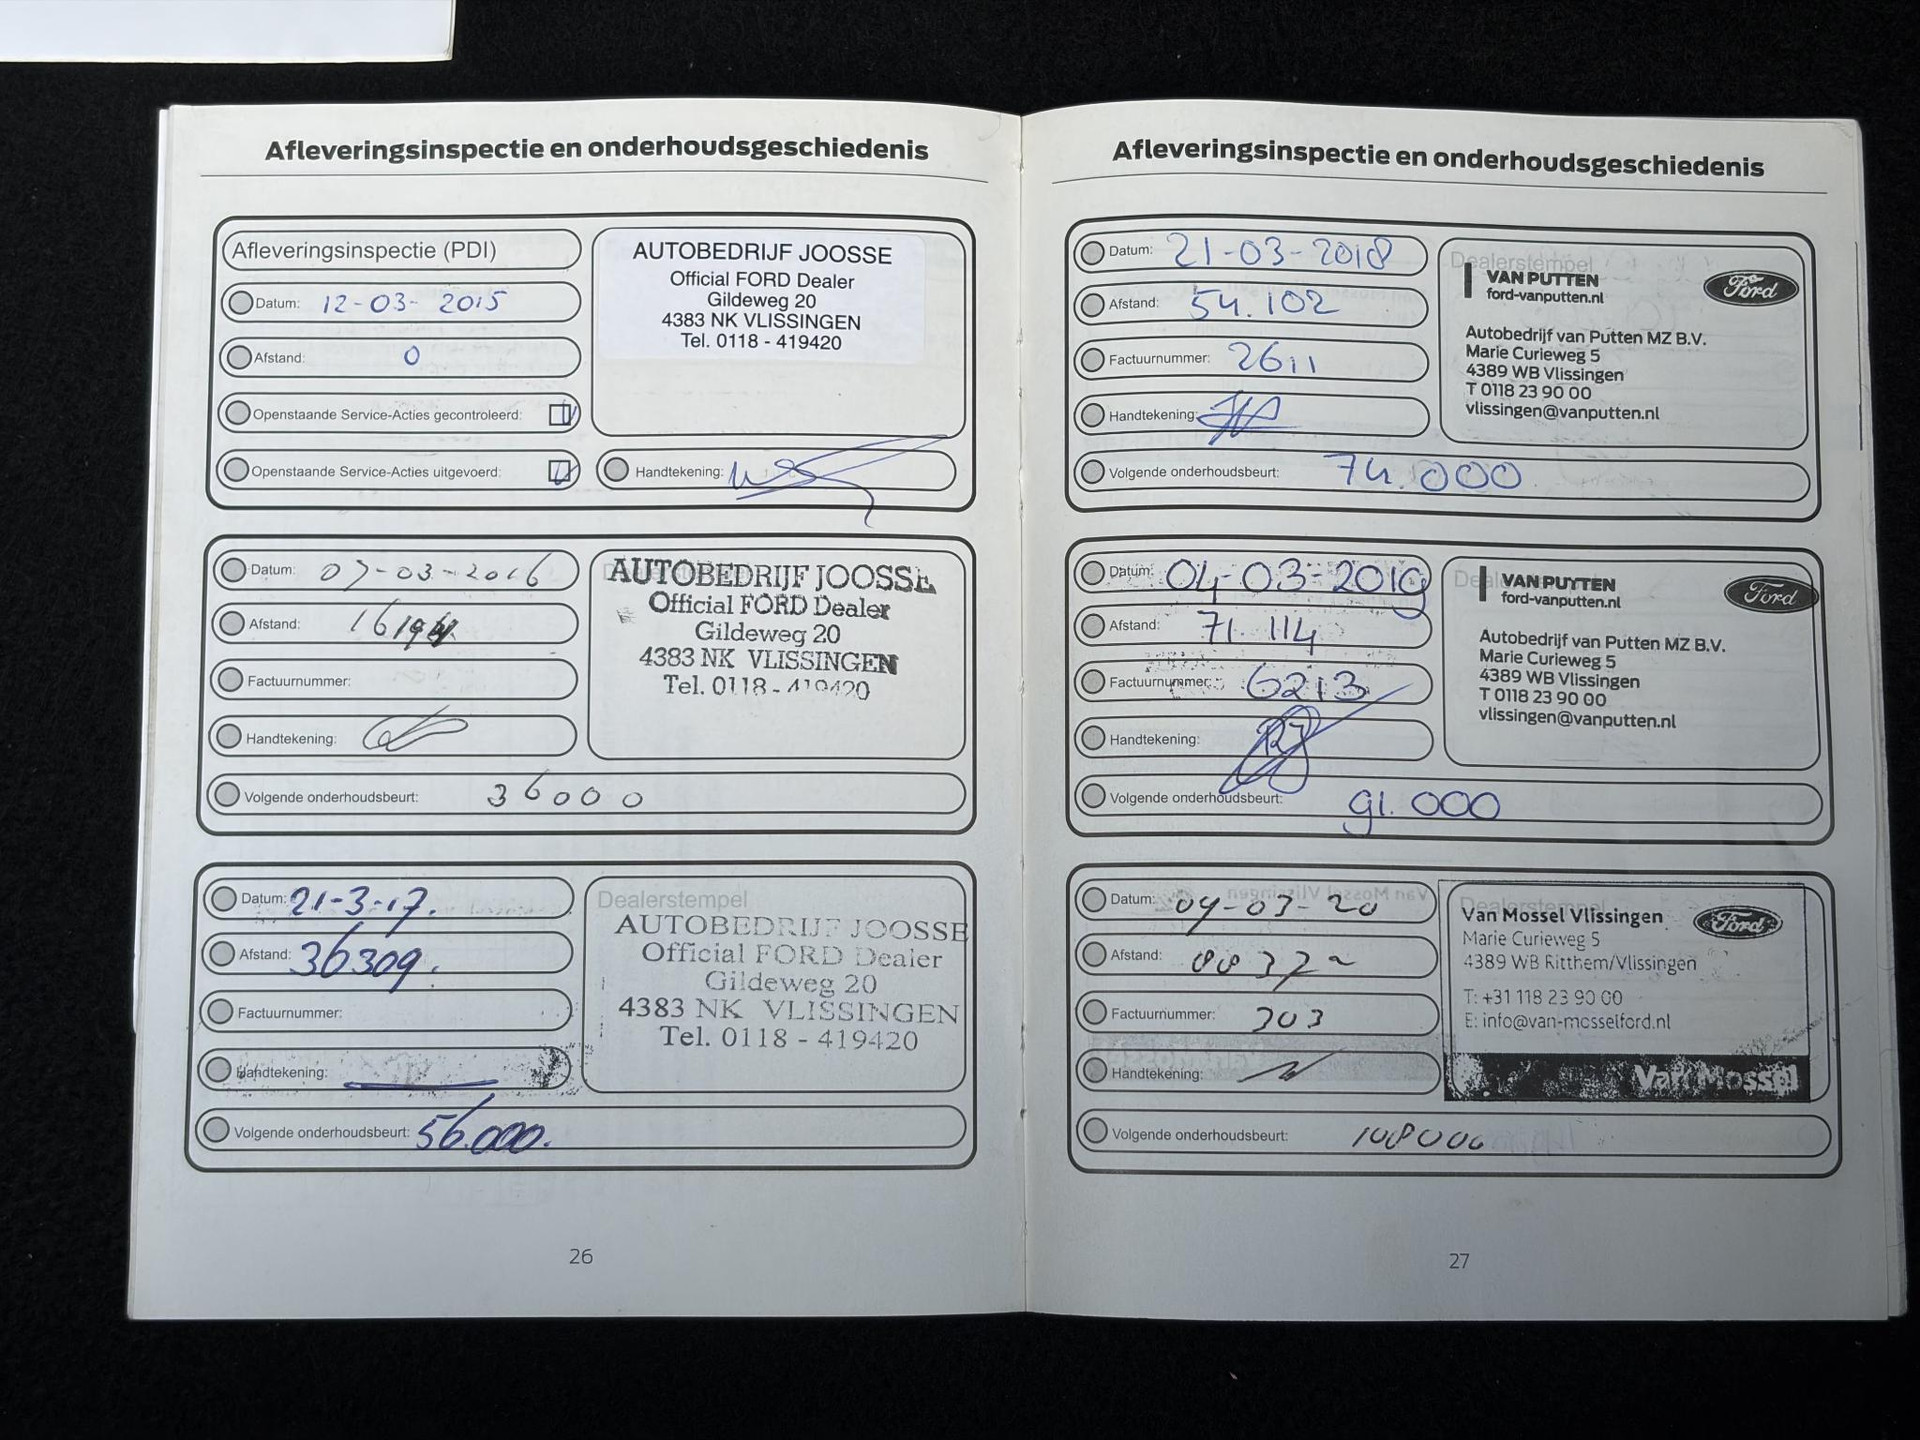 Afleveringsinspectie en onderhoudsgeschiedenis
Afleveringsinspectie (PDI)
Datum: 12-03-2015
Afstand: 0
Openstaande Service-Acties gecontroleerd:
Openstaande Service-Acties uitgevoerd:
AUTOBEDRIJF JOOSSE
Official FORD Dealer
Gildeweg 20
4383 NK VLISSINGEN
Tel. 0118 - 419420
Handtekening:
Datum: 07-03-2016
Afstand:
Factuurnummer:
Handtekening:
Volgende onderhoudsbeurt: 36000
AUTOBEDRIJF JOOSSE
Official FORD Dealer
Gildeweg 20
4383 NK VLISSINGEN
Tel. 0118 - 419420
Datum: 21-3-17.
Afstand: 36309.
Factuurnummer:
Handtekening:
Volgende onderhoudsbeurt: 56.000.
Dealerstempel
AUTOBEDRIJF JOOSSE
Official FORD Dealer
Gildeweg 20
4383 NK VLISSINGEN
Tel. 0118 - 419420
26
Afleveringsinspectie en onderhoudsgeschiedenis
Datum: 21-03-2018
Afstand: 54.102
Factuurnummer: 2611
Handtekening:
Volgende onderhoudsbeurt: 74.000
Dealerstempel
VAN PUTTEN
ford-vanputten.nl
Ford
Autobedrijf van Putten MZ B.V.
Marie Curieweg 5
4389 WB Vlissingen
T 0118 23 90 00
vlissingen@vanputten.nl
Datum: 04-03-2019
Afstand: 71.114
Factuurnummer: 6213
Handtekening:
Volgende onderhoudsbeurt: 91.000
VAN PUTTEN
ford-vanputten.nl
Ford
Autobedrijf van Putten MZ B.V.
Marie Curieweg 5
4389 WB Vlissingen
T 0118 23 90 00
vlissingen@vanputten.nl
Datum: 04-03-20
Afstand:
Factuurnummer: 303
Handtekening:
Volgende onderhoudsbeurt: 108000
Van Mossel Vlissingen
Ford
Marie Curieweg 5
4389 WB Ritthem/Vlissingen
T: +31 118 23 90 00
E: info@van-mosselford.nl
Van Mossel
27